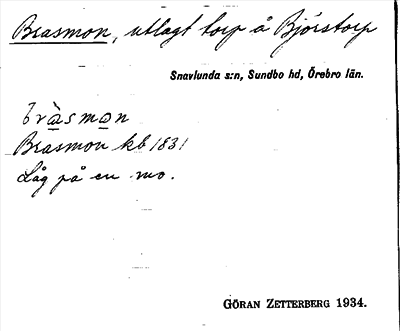 Brasmon, utlagt torp å Björstorp
Snavlunda s:n, Sundbo hd, Örebro län.
bràsmon
Brasmon kb 1831
Låg på en mo.
GÖRAN ZETTERBERG 1934.